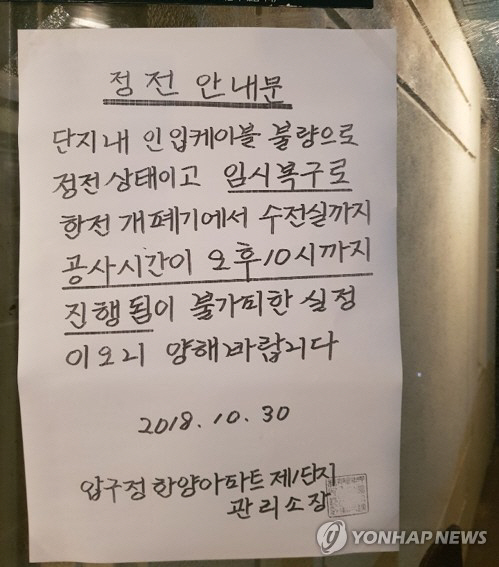 정전 안내문
단지내 인입케이블 불량으로
정전상태이고 임시복구로
한전 개폐기에서 수전실까지
공사시간이 오후10시까지
진행됨이 불가피한 실정
이오니 양해바랍니다
2018.10.30
압구정한양아파트 제1단지
관리소장
YONHAP NEWS